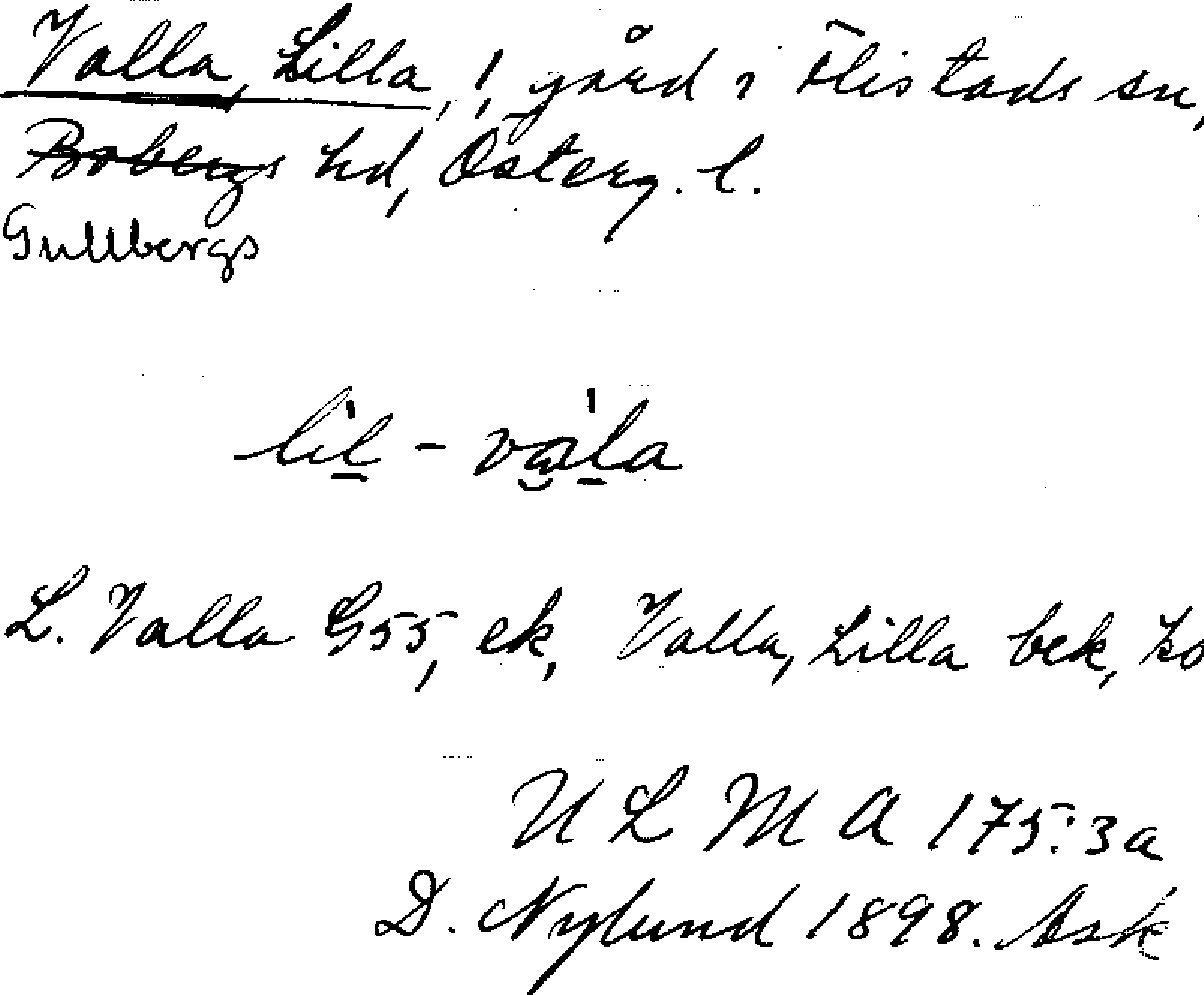 Valla, Lilla, 1 gård i Flistads sn,
Bobergs hd, Österg. l.
Gullbergs
lil - vala
L. Valla G55, ek, Valla, Lilla bek, ko
U L M A 175:3a
D. Nylund 1898. Ask